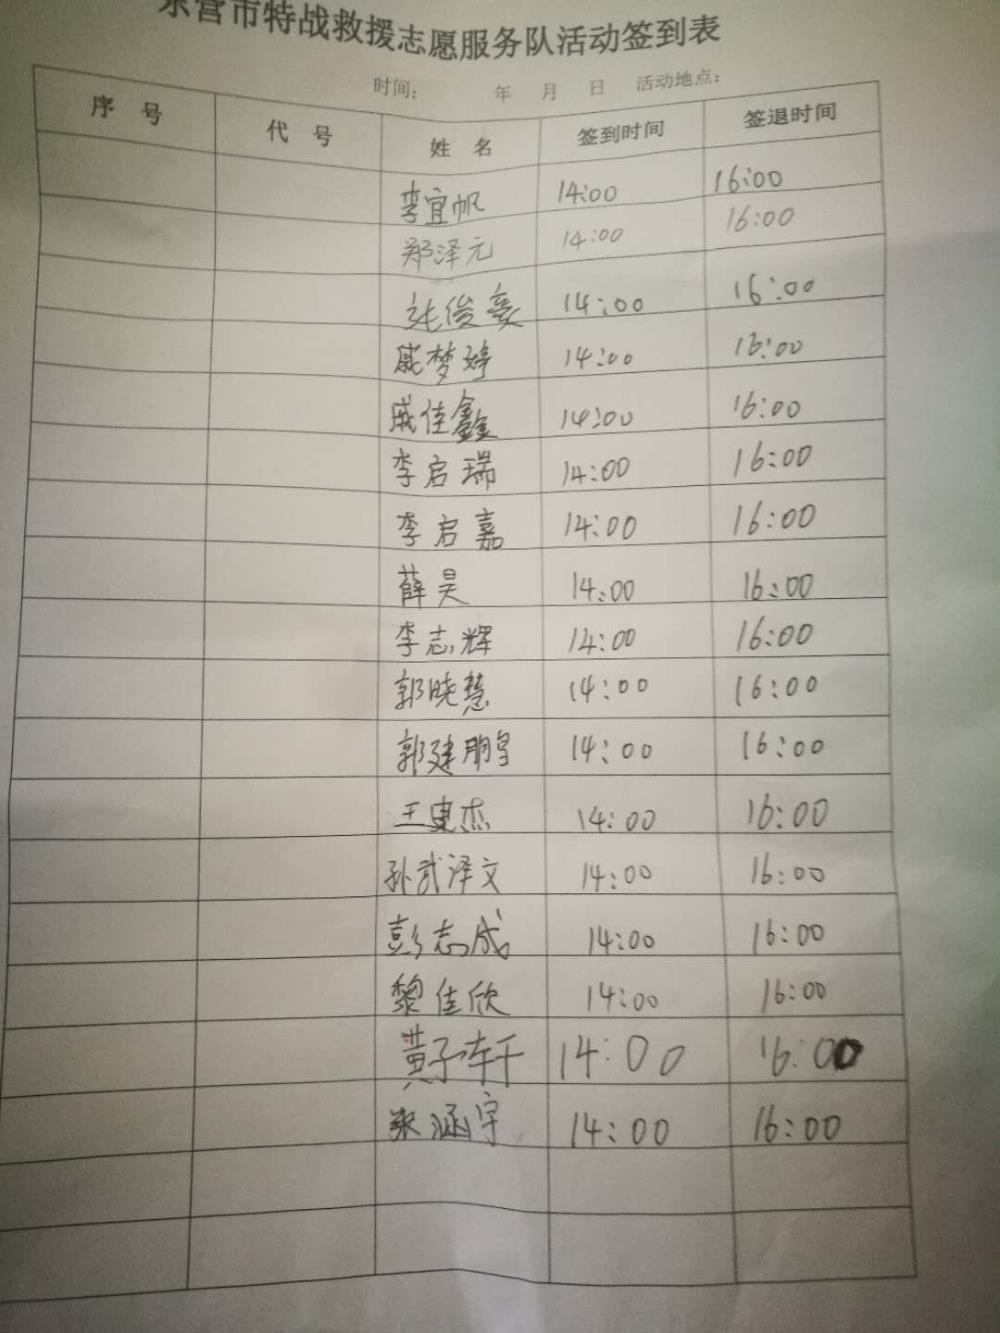 东营市特战救援志愿服务队活动签到表
时间： 年 月 日 活动地点：
序 号 代 号 姓 名 签到时间 签退时间
李宜帆 14:00 16:00
郑泽元 14:00 16:00
张俊豪 14:00 16:00
戚梦婷 14:00 16:00
戚佳鑫 14:00 16:00
李启瑞 14:00 16:00
李启嘉 14:00 16:00
薛昊 14:00 16:00
李志辉 14:00 16:00
郭晓慧 14:00 16:00
郭建鹏 14:00 16:00
王建杰 14:00 16:00
孙武泽文 14:00 16:00
彭志成 14:00 16:00
黎佳欣 14:00 16:00
黄子轩 14:00 16:00
张涵宇 14:00 16:00